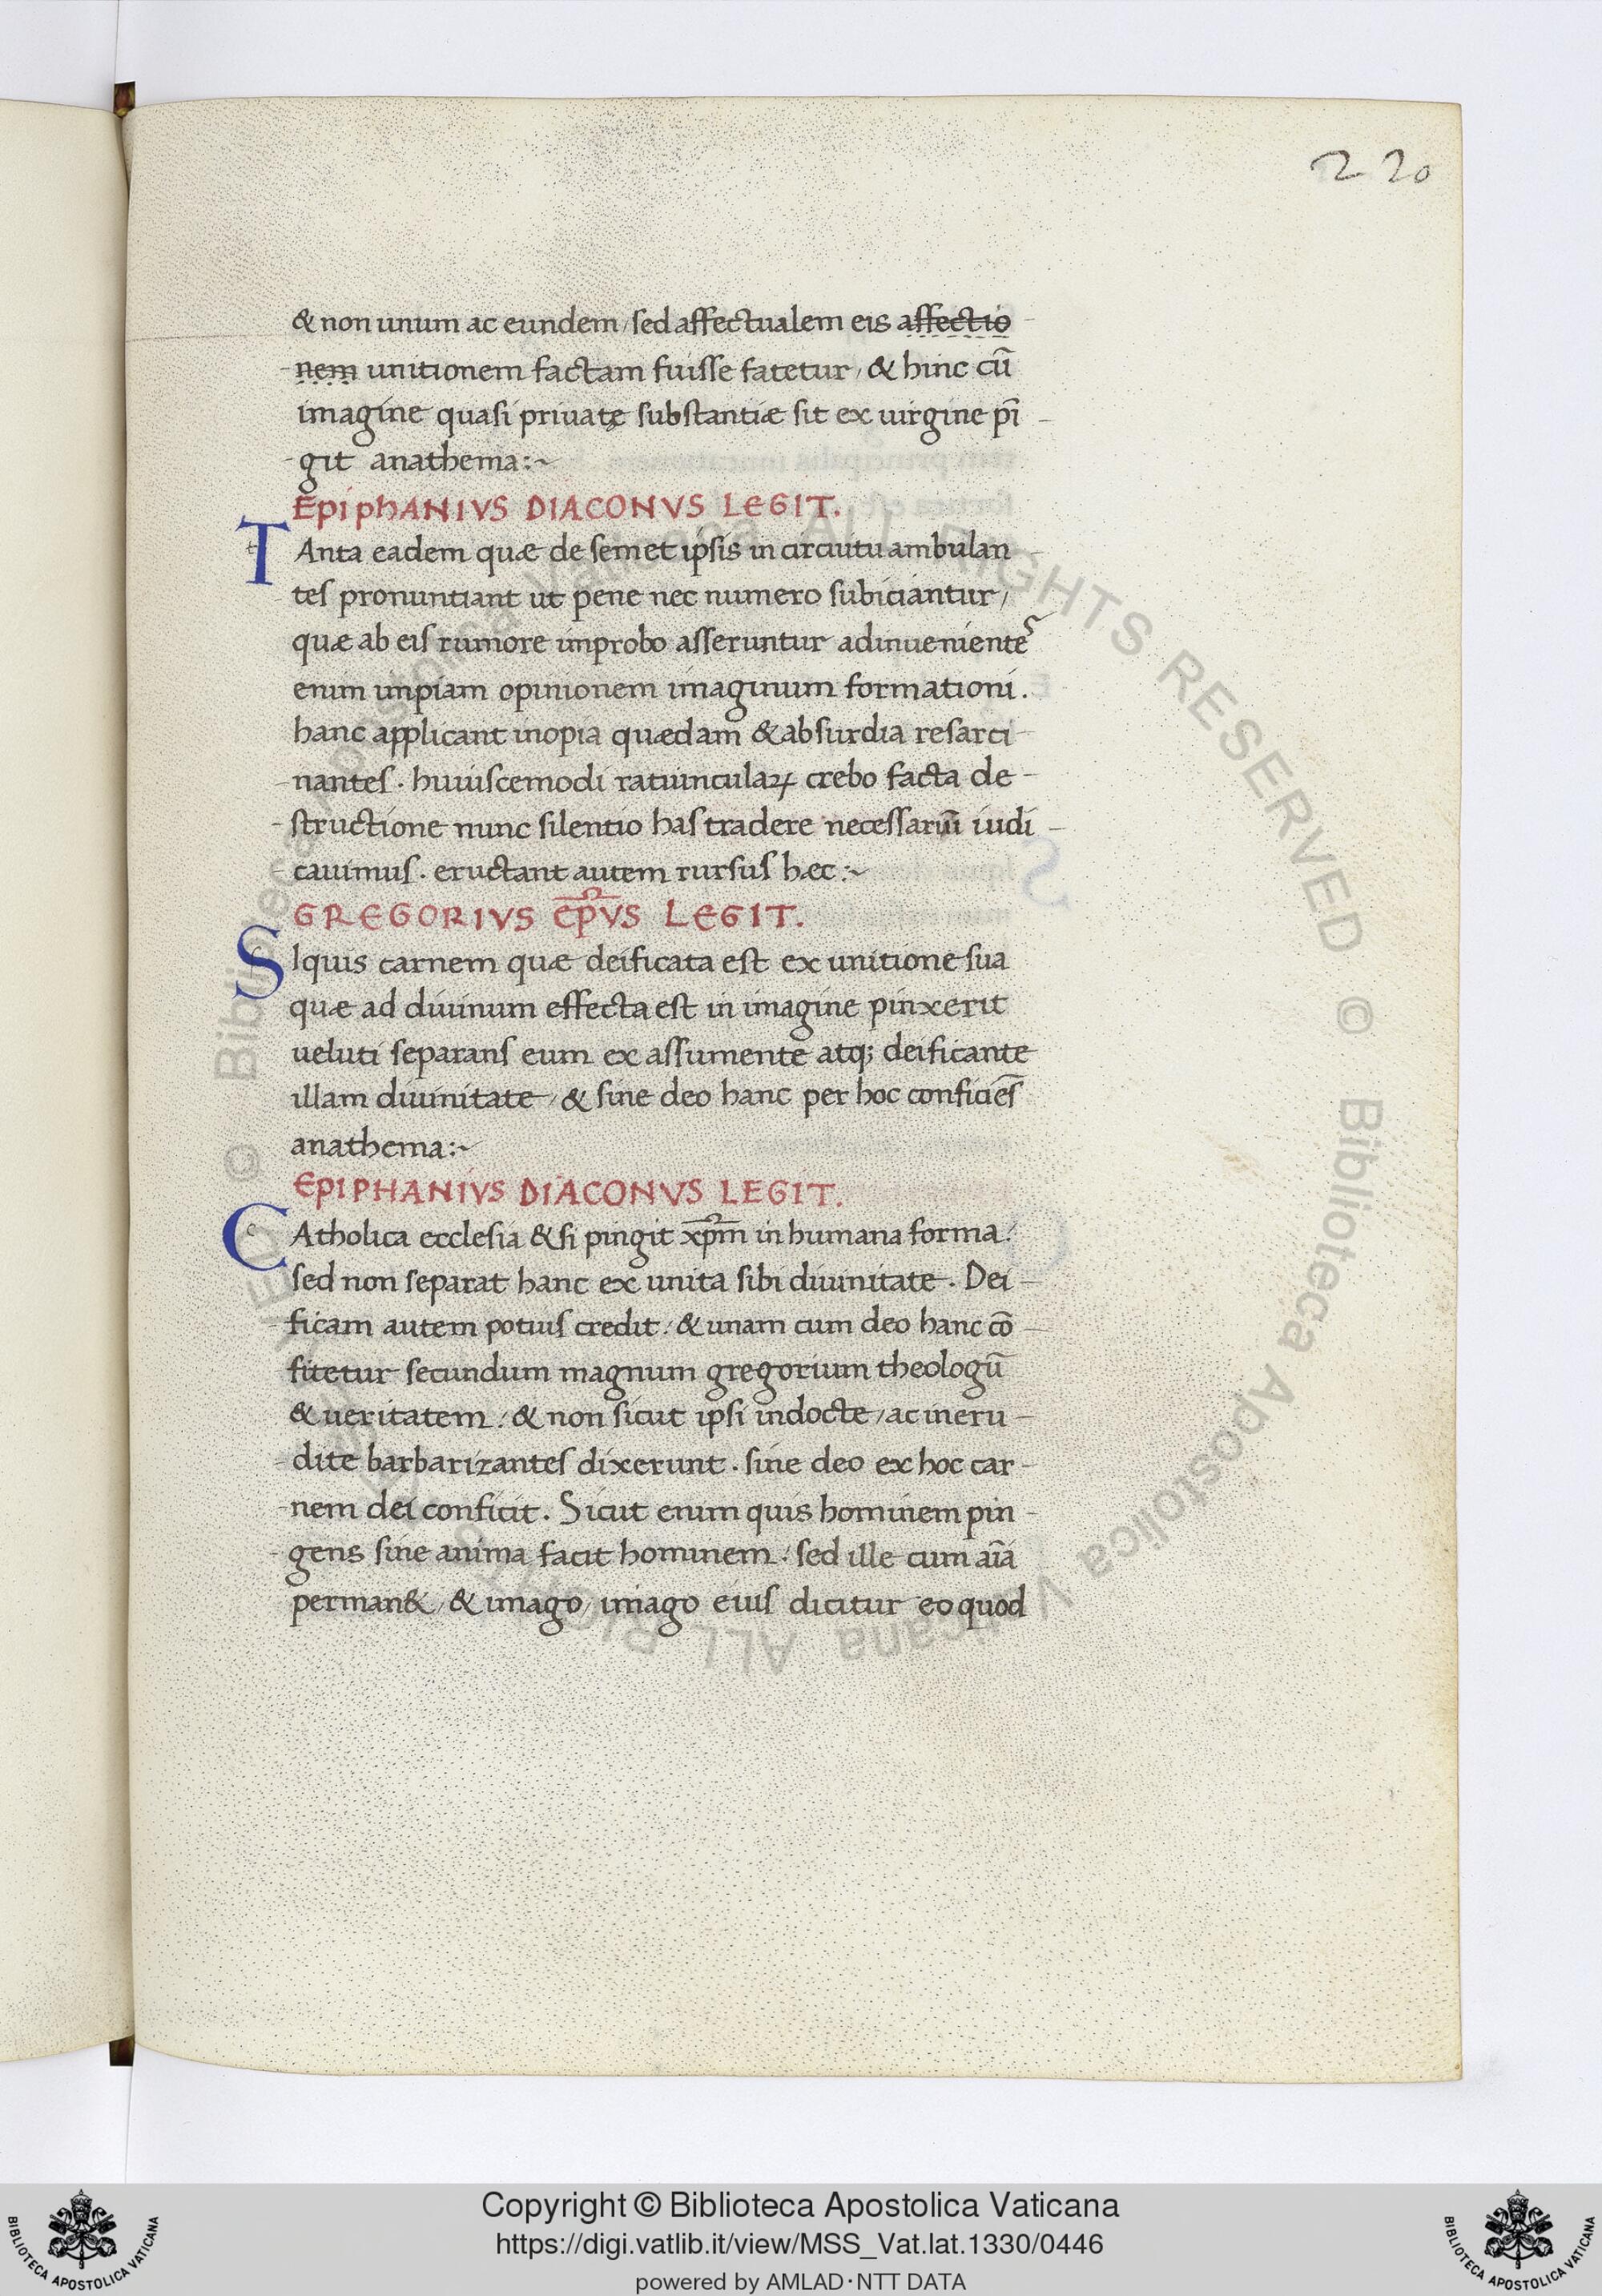 220
& non unum ac eundem, sed affectualem eis affectio
nem unitionem factam fuisse fatetur, & hinc cū
imagine quasi privatę substantiæ sit ex uirgine pī
git anathema:~
EpiphANIVS DIACONVS LEGIT.
TAnta eadem quæ de semet ipsis in circuitu ambulan
tes pronuntiant ut pene nec numero subiciantur,
quæ ab eis rumore improbo asseruntur adinuenientes
enim impiam opinionem imaginum formationi.
hanc applicant inopia quædam & absurdia resarci
nantes. huiuscemodi ratiuncularꝝ crebo facta de
structione nunc silentio has tradere necessariū iudi
cauimus. eructant autem rursus hæc:~
GREGORIVS ep̄VS LEGIT.
SIquis carnem quæ deificata est ex unitione sua
quæ ad diuinum effecta est in imagine pinxerit
ueluti separans eum ex assumente atq; deificante
illam diuinitate, & sine deo hanc per hoc conficiēs
anathema:~
EPIPHANIVS DIACONVS LEGIT.
CAtholica ecclesia & si pingit xp̄m in humana forma,
sed non separat hanc ex unita sibi diuinitate. Dei
ficam autem potius credit, & unam cum deo hanc cō
fitetur secundum magnum gregorium theologū
& ueritatem, & non sicut ipsi indocte, ac ineru
dite barbarizantes dixerunt. sine deo ex hoc car
nem dei conficit. Sicut enim quis hominem pin
gens sine anima facit hominem, sed ille cum aīa
perman&, & imago, imago eius dicitur eo quod
© Biblioteca Apostolica Vaticana ALL RIGHTS RESERVED © Biblioteca Apostolica Vaticana ALL RIGHTS RESERVED
Copyright © Biblioteca Apostolica Vaticana
https://digi.vatlib.it/view/MSS_Vat.lat.1330/0446
powered by AMLAD·NTT DATA
BIBLIOTECA APOSTOLICA VATICANA
BIBLIOTECA APOSTOLICA VATICANA